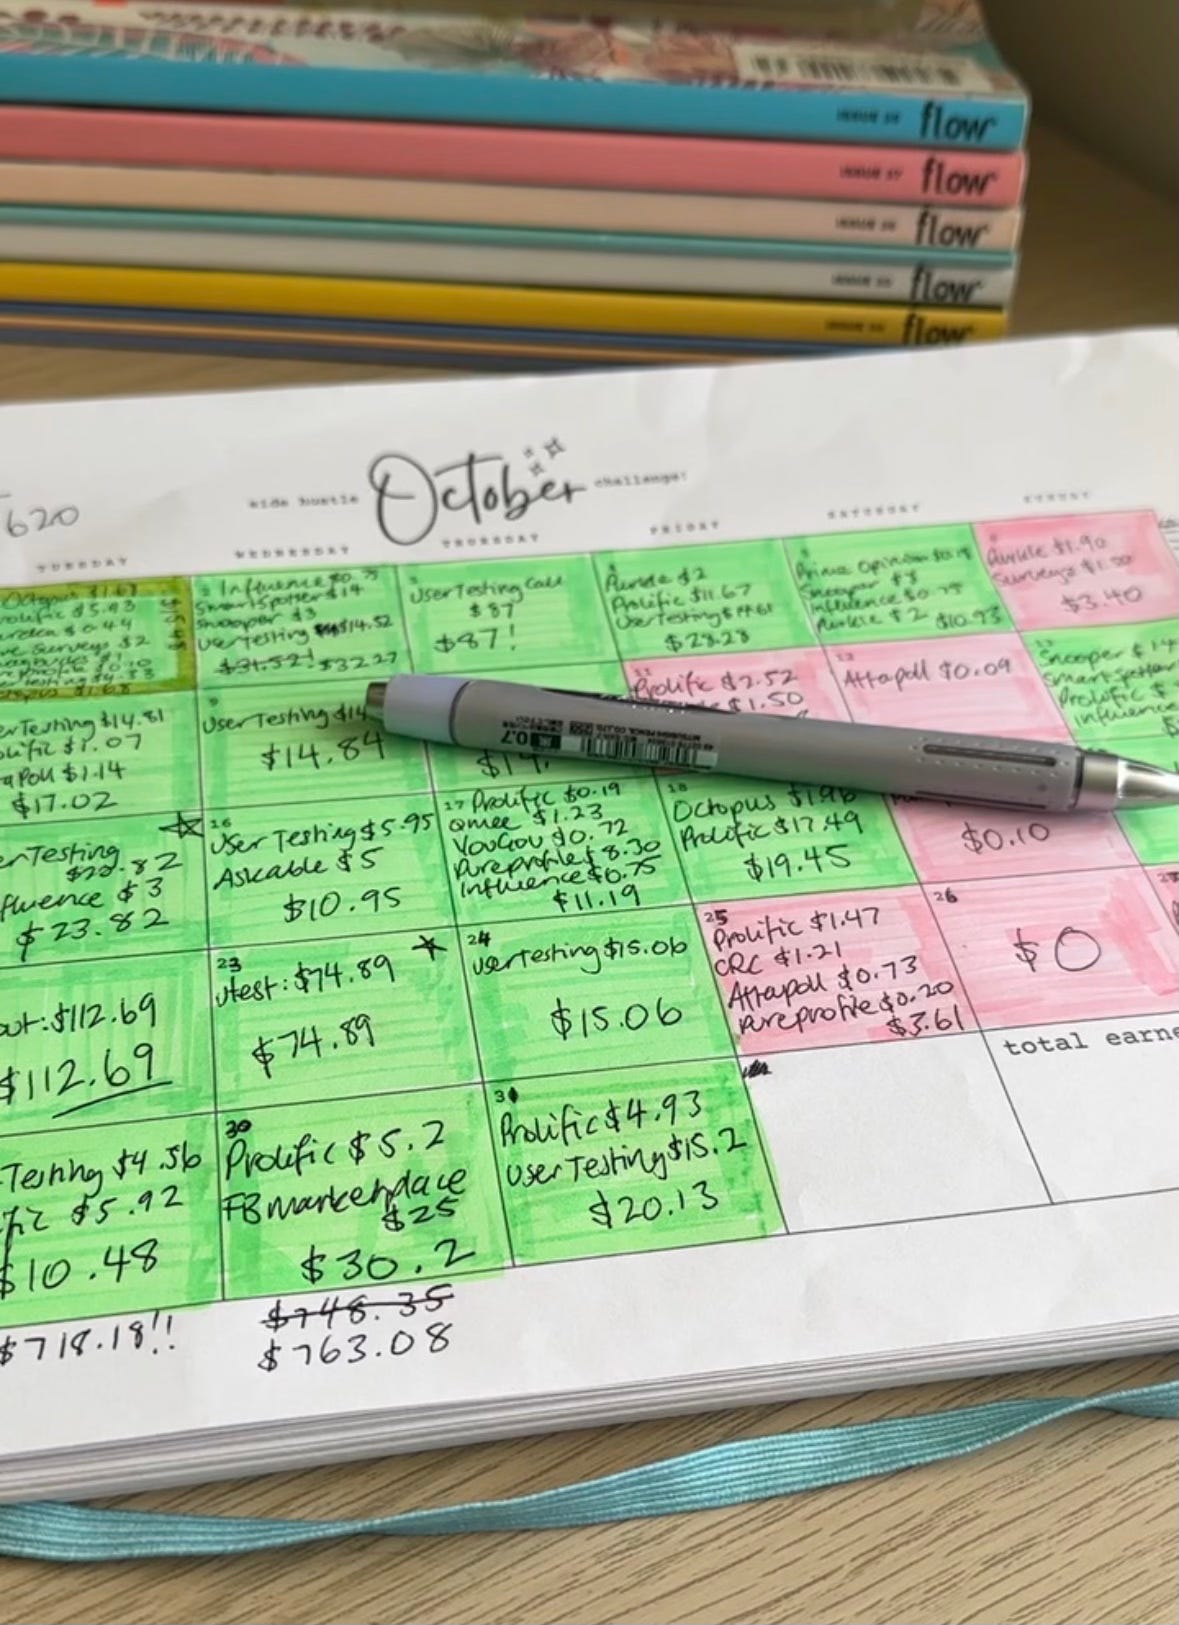 ISSUE
flow
ISSUE 27
flow
ISSUE
flow
ISSUE
flow
ISSUE
flow
620
side hustle October challenge!
TUESDAY
WEDNESDAY
THURSDAY
FRIDAY
SATURDAY
SUNDAY
Octopus $1.67
olific $5.93
$0.44
ve Surveys $2
2 Influence $0.75
SmartSpotter $14
Snooper $3
UserTesting $14.52
$31.52! $32.27
3
UserTesting Call
$87
$87!
4
Aurkle $2
Prolific $11.67
UserTesting $14.61
$28.28
5
Prime Opinion
Snooper $8
Influence $0.75
Aurkle $2 $10.93
6
Aurkle $1.90
Surveys $1.50
$3.40
erTesting $14.81
olific $1.07
apoll $1.14
$17.02
9
UserTesting $14
$14.84
$14.
11
Prolific $2.52
$1.50
12
Attapoll $0.09
13
Snooper $14
Smart Spotter
Prolific $
Influence
erTesting
$20.82
fluence $3
$23.82
16
User Testing $5.95
Askable $5
$10.95
17 Prolific $0.19
Qmee $1.23
YouGov $0.72
Pureprofile $8.30
Influence $0.75
$11.19
18
Octopus $1.96
Prolific $17.49
$19.45
$0.10
out: $112.69
$112.69
23
utest: $74.89
$74.89
24
UserTesting $15.06
$15.06
25
Prolific $1.47
CRC $1.21
Attapoll $0.73
Pureprofile $0.20
$3.61
26
$0
Testing $4.56
fic $5.92
$10.48
30
Prolific $5.2
FB marketplace
$25
$30.2
31
Prolific $4.93
User Testing $15.2
$20.13
total earne
$718.18!!
$748.35
$763.08
0.7
MITSUBISHI PENCIL CO.,LTD.